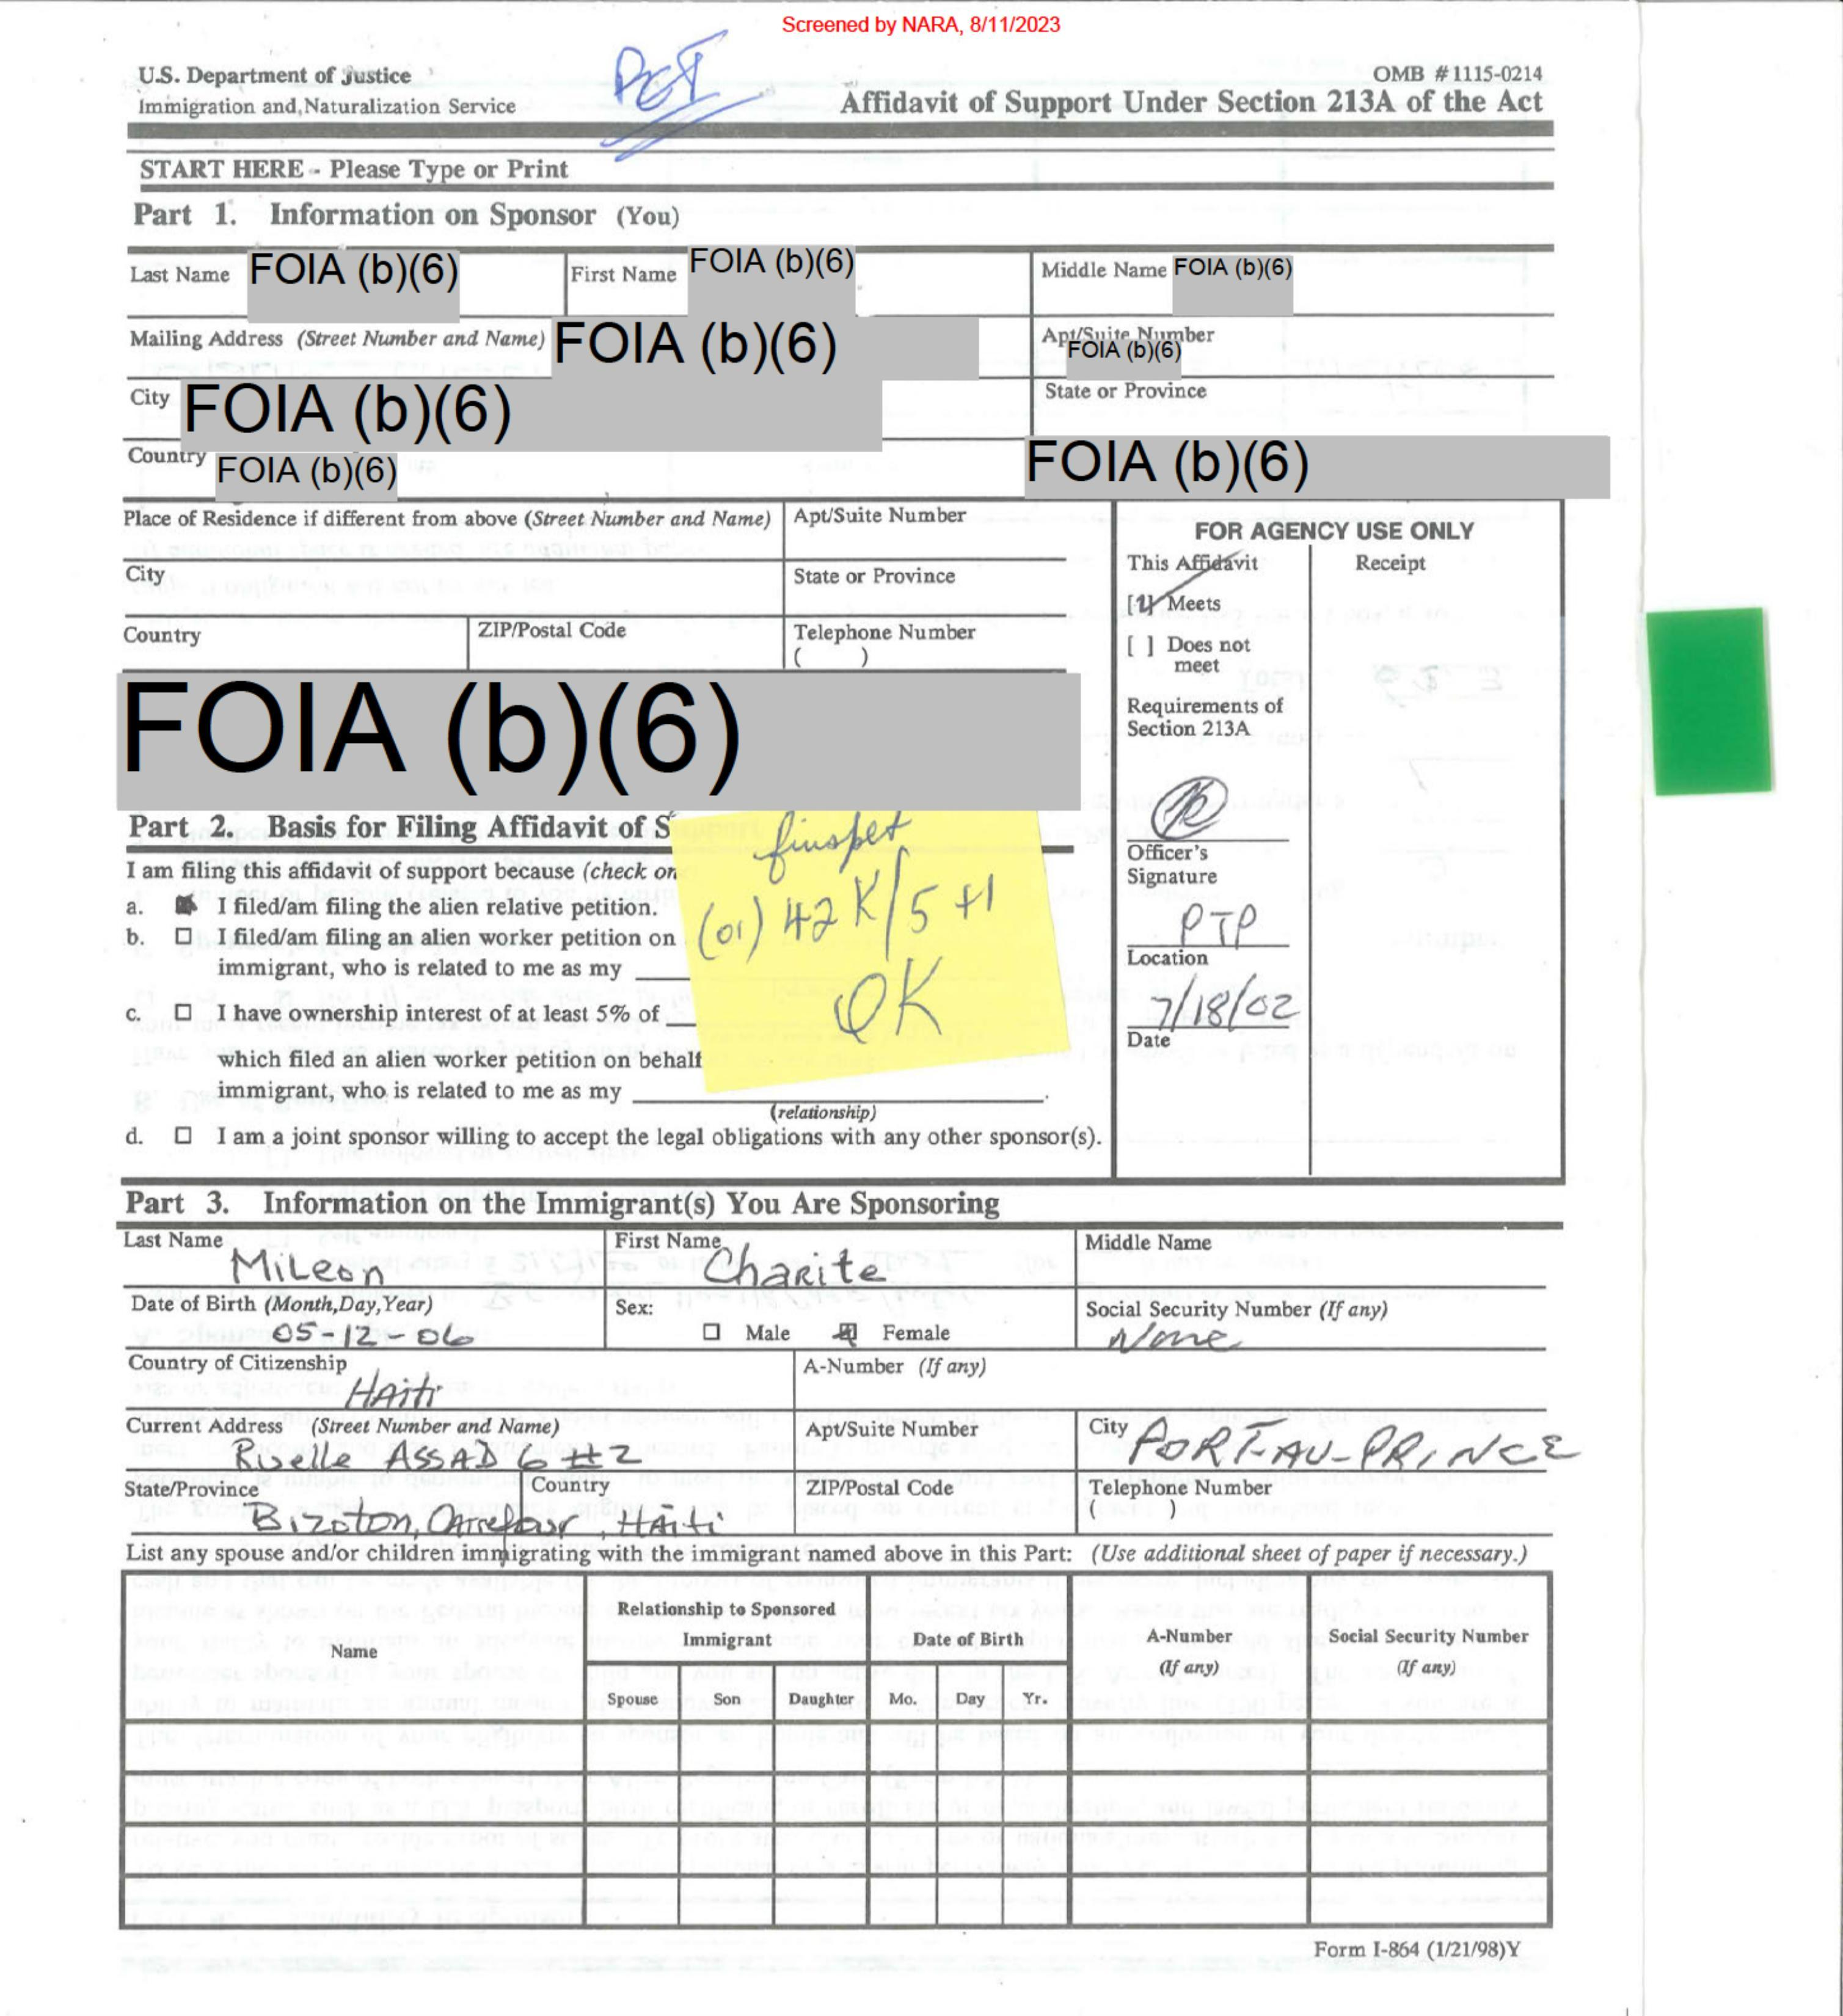 Screened by NARA, 8/11/2023
U.S. Department of Justice
Immigration and Naturalization Service
OMB #1115-0214
Affidavit of Support Under Section 213A of the Act
START HERE - Please Type or Print
Part 1. Information on Sponsor (You)
Last Name FOIA (b)(6) First Name FOIA (b)(6) Middle Name FOIA (b)(6)
Mailing Address (Street Number and Name) FOIA (b)(6) Apt/Suite Number FOIA (b)(6)
City FOIA (b)(6) State or Province
Country FOIA (b)(6) FOIA (b)(6)
Place of Residence if different from above (Street Number and Name) Apt/Suite Number
City State or Province
Country ZIP/Postal Code Telephone Number
( )
FOIA (b)(6)
FOR AGENCY USE ONLY
This Affidavit Receipt
[ ] Meets
[ ] Does not
meet
Requirements of
Section 213A
Officer's
Signature
PTP
Location
7/18/02
Date
Part 2. Basis for Filing Affidavit of S
I am filing this affidavit of support because (check on
a. I filed/am filing the alien relative petition.
b. I filed/am filing an alien worker petition on
immigrant, who is related to me as my
c. I have ownership interest of at least 5% of
which filed an alien worker petition on behalf
immigrant, who is related to me as my
(relationship)
d. I am a joint sponsor willing to accept the legal obligations with any other sponsor(s).
(01) 42K/5+1
OK
Part 3. Information on the Immigrant(s) You Are Sponsoring
Last Name MiLeon First Name Charite Middle Name
Date of Birth (Month,Day,Year) 05-12-06 Sex: Male Female Social Security Number (If any) None
Country of Citizenship Haiti A-Number (If any)
Current Address (Street Number and Name) Ruelle ASSAD 6 #2 Apt/Suite Number City PORT-AU-PRINCE
State/Province Country ZIP/Postal Code Telephone Number
Bizoton, Carrefour, Haiti ( )
List any spouse and/or children immigrating with the immigrant named above in this Part: (Use additional sheet of paper if necessary.)
Name Relationship to Sponsored Immigrant Date of Birth A-Number (If any) Social Security Number (If any)
Spouse Son Daughter Mo. Day Yr.
Form I-864 (1/21/98)Y